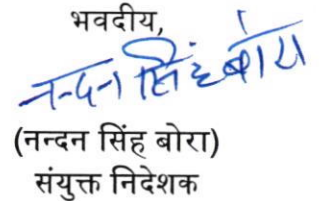 भवदीय,
नन्दन सिंह बोरा
(नन्दन सिंह बोरा)
संयुक्त निदेशक